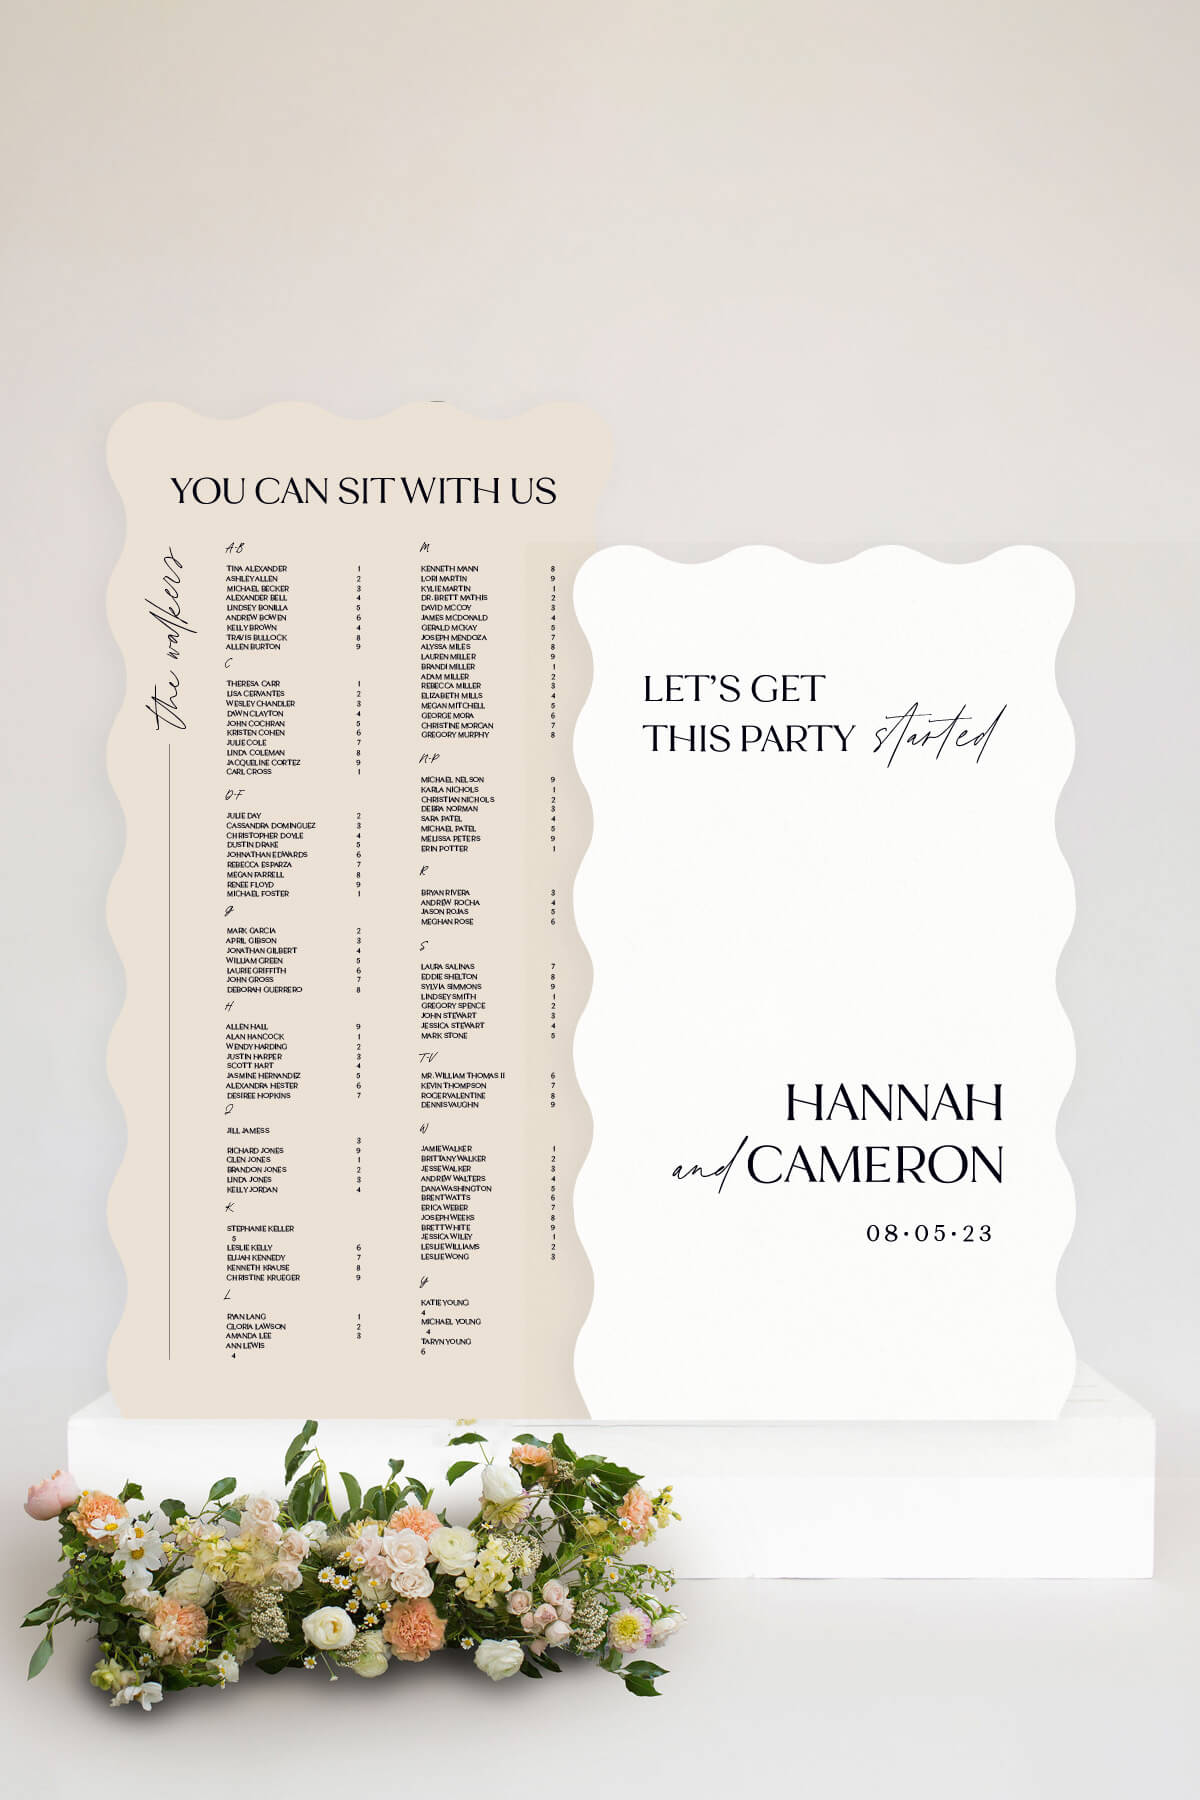 YOU CAN SIT WITH US
the walkers
A-B
TINA ALEXANDER 1
ASHLEY ALLEN 2
MICHAEL BECKER 3
ALEXANDER BELL 4
LINDSEY BONILLA 5
ANDREW BOWEN 6
KELLY BROWN 4
TRAVIS BULLOCK 8
ALLEN BURTON 9
C
THERESA CARR 1
LISA CERVANTES 2
WESLEY CHANDLER 3
DAWN CLAYTON 4
JOHN COCHRAN 5
KRISTEN COHEN 6
JULIE COLE 7
LINDA COLEMAN 8
JACQUELINE CORTEZ 9
CARL CROSS 1
D-F
JULIE DAY 2
CASSANDRA DOMINGUEZ 3
CHRISTOPHER DOYLE 4
DUSTIN DRAKE 5
JOHNATHAN EDWARDS 6
REBECCA ESPARZA 7
MEGAN FARRELL 8
RENEE FLOYD 9
MICHAEL FOSTER 1
g
MARK GARCIA 2
APRIL GIBSON 3
JONATHAN GILBERT 4
WILLIAM GREEN 5
LAURIE GRIFFITH 6
JOHN GROSS 7
DEBORAH GUERRERO 8
H
ALLEN HALL 9
ALAN HANCOCK 1
WENDY HARDING 2
JUSTIN HARPER 3
SCOTT HART 4
JASMINE HERNANDEZ 5
ALEXANDRA HESTER 6
DESIREE HOPKINS 7
J
JILL JAMESS
3
RICHARD JONES 9
GLEN JONES 1
BRANDON JONES 2
LINDA JONES 3
KELLY JORDAN 4
K
STEPHANIE KELLER
5
LESLIE KELLY 6
ELIJAH KENNEDY 7
KENNETH KRAUSE 8
CHRISTINE KRUEGER 9
L
RYAN LANG 1
GLORIA LAWSON 2
AMANDA LEE 3
ANN LEWIS
4
M
KENNETH MANN 8
LORI MARTIN 9
KYLIE MARTIN 1
DR. BRETT MATHIS 2
DAVID MCCOY 3
JAMES MCDONALD 4
GERALD MCKAY 5
JOSEPH MENDOZA 7
ALYSSA MILES 8
LAUREN MILLER 9
BRANDI MILLER 1
ADAM MILLER 2
REBECCA MILLER 3
ELIZABETH MILLS 4
MEGAN MITCHELL 5
GEORGE MORA 6
CHRISTINE MORGAN 7
GREGORY MURPHY 8
N-P
MICHAEL NELSON 9
KARLA NICHOLS 1
CHRISTIAN NICHOLS 2
DEBRA NORMAN 3
SARA PATEL 4
MICHAEL PATEL 5
MELISSA PETERS 9
ERIN POTTER 1
R
BRYAN RIVERA 3
ANDREW ROCHA 4
JASON ROJAS 5
MEGHAN ROSE 6
S
LAURA SALINAS 7
EDDIE SHELTON 8
SYLVIA SIMMONS 9
LINDSEY SMITH 1
GREGORY SPENCE 2
JOHN STEWART 3
JESSICA STEWART 4
MARK STONE 5
T-V
MR. WILLIAM THOMAS II 6
KEVIN THOMPSON 7
ROGER VALENTINE 8
DENNIS VAUGHN 9
W
JAMIE WALKER 1
BRITTANY WALKER 2
JESSE WALKER 3
ANDREW WALTERS 4
DANA WASHINGTON 5
BRENT WATTS 6
ERICA WEBER 7
JOSEPH WEEKS 8
BRETT WHITE 9
JESSICA WILEY 1
LESLIE WILLIAMS 2
LESLIE WONG 3
y
KATIE YOUNG
4
MICHAEL YOUNG
4
TARYN YOUNG
6
LET'S GET
THIS PARTY started
HANNAH
and CAMERON
08•05•23